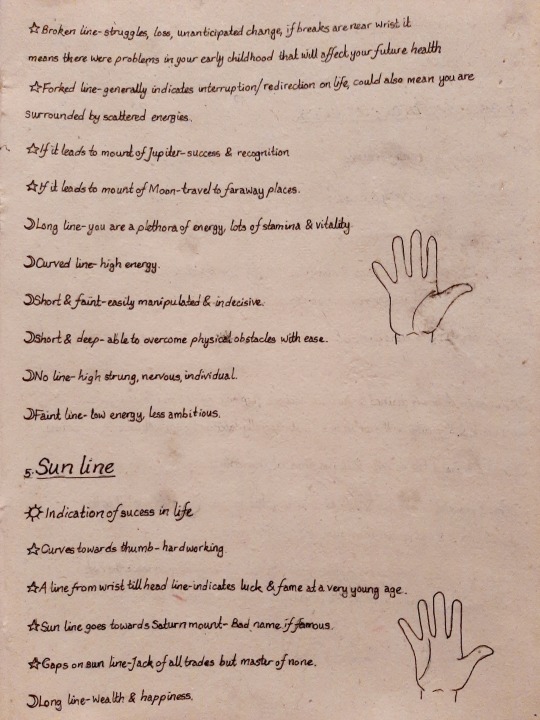 ☆Broken line-struggles, loss, unanticipated change, if breaks are near wrist it
means there were problems in your early childhood that will affect your future health
☆Forked line-generally indicates interruption/redirection on life, could also mean you are
surrounded by scattered energies.
☆If it leads to mount of Jupiter-success & recognition
☆If it leads to mount of Moon-travel to faraway places.
☽Long line-you are a plethora of energy, lots of stamina & vitality.
☽Curved line-high energy.
☽Short & faint-easily manipulated & indecisive.
☽Short & deep-able to overcome physical obstacles with ease.
☽No line-high strung, nervous, individual.
☽Faint line-low energy, less ambitious.
5. Sun line
☼Indication of sucess in life
☆Curves towards thumb-hardworking.
☆A line from wrist till head line-indicates luck & fame at a very young age.
☆Sun line goes towards Saturn mount-Bad name if famous.
☆Gaps on sun line-Jack of all trades but master of none.
☽Long line-wealth & happiness.